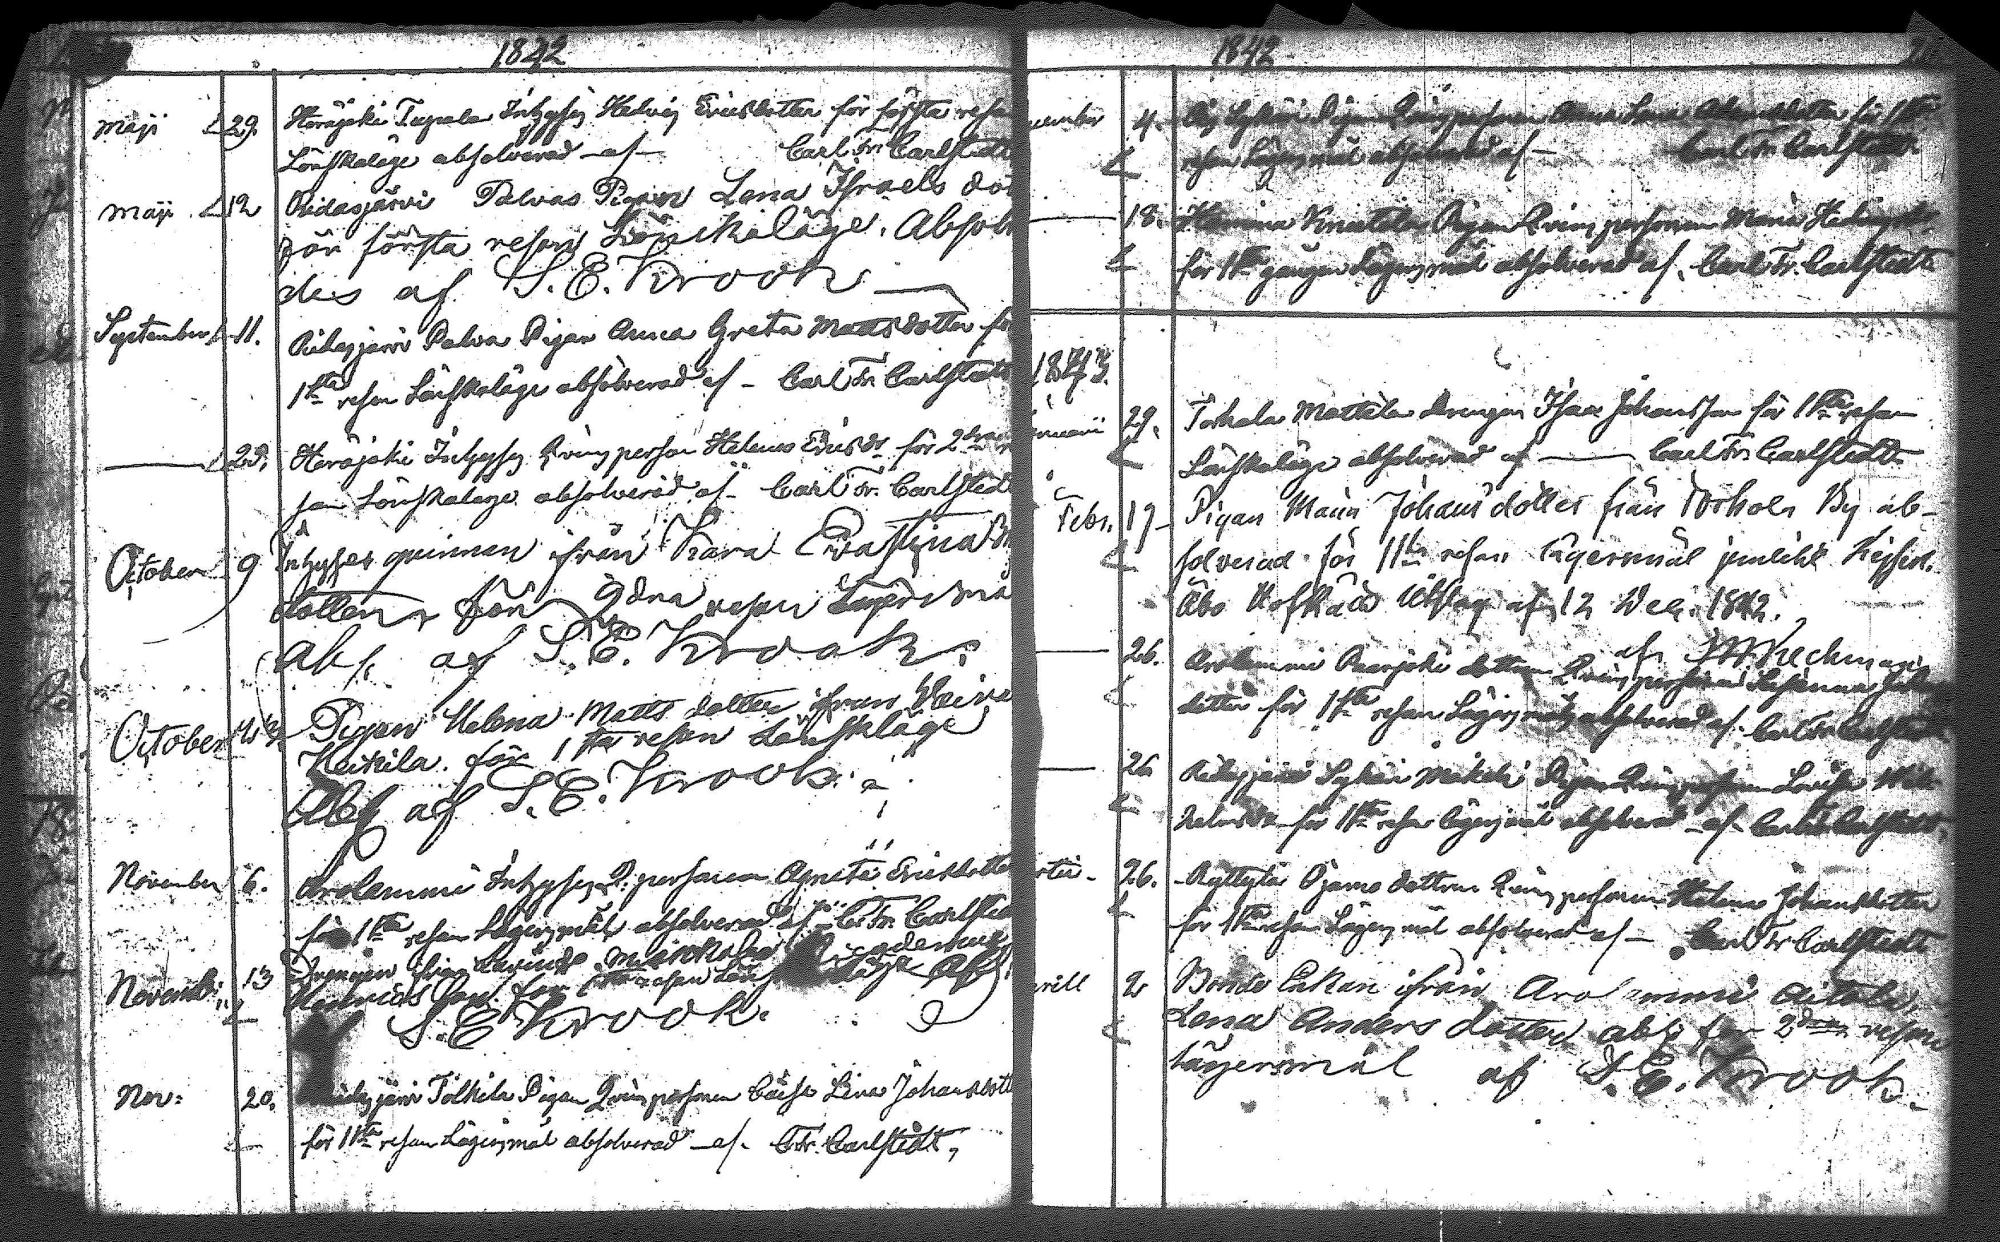 1842
Maji 29. Herajoki Tupala Inhyses Hedvig Ericsdotter för första resan
Lönskaläge absolverad af Carl Fr. Carlstedt
Maji 12 Ridasjärvi Palvas Pigan Lena Israels dot
för första resan Lönskaläge. Absolv
des af S. E. Krook
September 11. Ridasjärvi Palva Pigan Anna Greta Mattsdotter för
1sta resan Lönskaläge absolverad af – Carl Fr. Carlstedt
25. Herajoki Inhyses Qvinsperson Helena Ericsdr för 2dra re
san Lönskaläge absolverad af – Carl Fr. Carlstedt
October 9 Inhyses quinnan ifrån Kara
dotter för 2dra resan Lägersmå
abs. af S. E. Krook.
October Pigan Helena Matts dotter ifrån
Heikila för 1sta resan Lönskläge
Abs af S. E. Krook.
November 6. Arolammi Inhyses Q. personen Agneta Ericsdotter
för 1sta resan Lägersmål absolverad af – C. Fr. Carlstedt
Novemb: 13 Drengen ifrån
Henrics son för 1sta resan
af S. E. Krook.
Nov: 20. Ridasjärvi Tolkila Pigan Qvinspersonen Lena Johansdott
för 1sta resan Lägersmål absolverad af. C. Fr. Carlstedt,
1842
ember 4. Pigan Qvinspersonen Anna Lena för 1sta
resan Lägersmål absolverad af – Carl Fr. Carlstedt
18. Pigan Qvinspersonen Maria
för 1sta gången Lägersmål absolverad af. Carl Fr. Carlstedt
1843.
nuarii 29. Torhola Mattila drengen Isac Johansson för 1sta resan
Lönskaläge absolverad af — Carl Fr. Carlstedt
Febr. 19 Pigan Maria Johans dotter från Torhola By ab-
solverad för 1sta resan Lägersmål jemlikt Kejserl.
Åbo Hofrätts Utslag af 12 Dec. 1842.
af
26. Arolammi dottren Qvinspersonen Susanna Joh
dotter för 1sta resan Lägersmål absolverad af. Carl Fr. Carlstedt
26 Ridasjärvi Sykäri Mikeli Pigan Qvinspersonen Lovisa Wil
helmsdr för 1sta resan Lägersmål absolverad af – Carl Fr. Carlstedt
rtii – 26. Ryttylä Ojamo dottren Qvinspersonen Helena Johansdotter
för 1sta resan Lägersmål absolverad af – Carl Fr. Carlstedt
rill 2 Bonde Enkan ifrån Arolammi
Lena Anders dotter abs. för 2dra resan
Lägersmål af S. E. Krook.